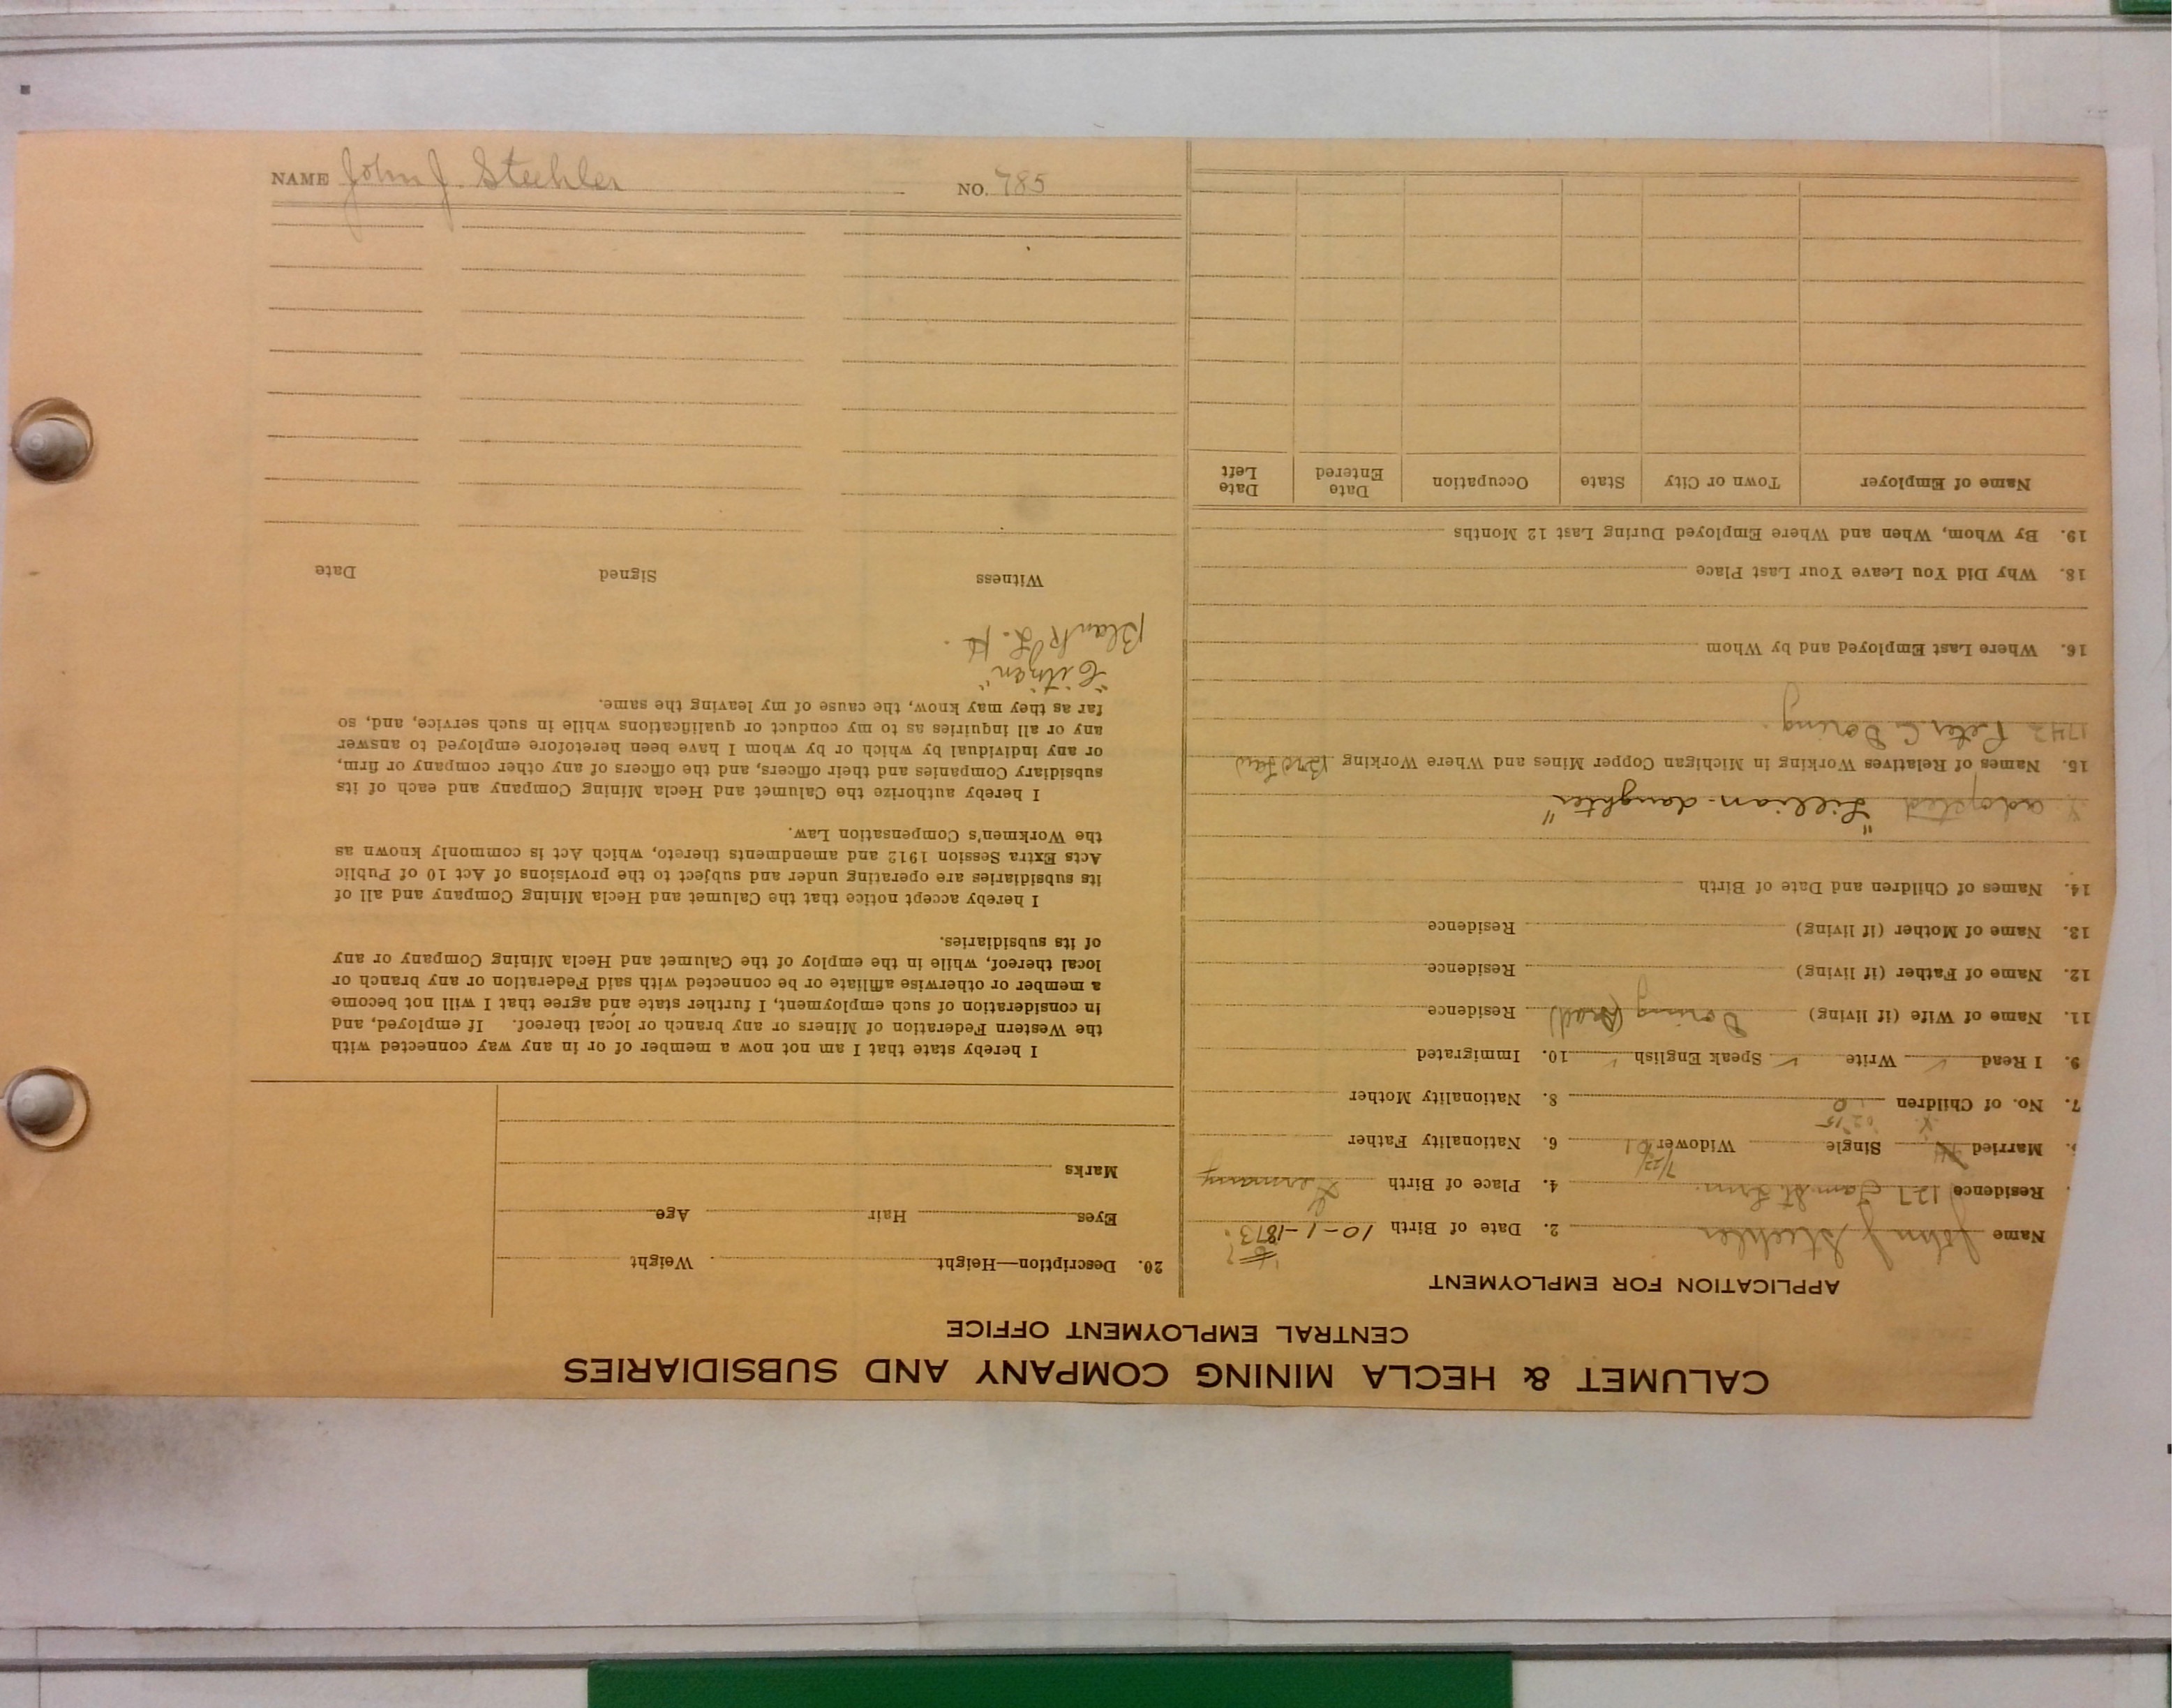 CALUMET & HECLA MINING COMPANY AND SUBSIDIARIES
CENTRAL EMPLOYMENT OFFICE
APPLICATION FOR EMPLOYMENT
Name John J Stechler 2. Date of Birth 10-1-1873
Residence 127 Tam. St. 4. Place of Birth Germany
7/22/21
Married Single Widower 6. Nationality Father
7. No. of Children 0 8. Nationality Mother
9. I Read ✓ Write ✓ Speak English ✓ 10. Immigrated
11. Name of Wife (if living) Doring (Dead) Residence
12. Name of Father (if living) Residence
13. Name of Mother (if living) Residence
14. Names of Children and Date of Birth
adopted "Lillian-daughter"
15. Names of Relatives Working in Michigan Copper Mines and Where Working Bro Law
1742 Peter C. Doring
16. Where Last Employed and by Whom
18. Why Did You Leave Your Last Place
19. By Whom, When and Where Employed During Last 12 Months
Name of Employer Town or City State Occupation Date Entered Date Left
20. Description—Height Weight
Eyes Hair Age
Marks
I hereby state that I am not now a member of or in any way connected with
the Western Federation of Miners or any branch or local thereof. If employed, and
in consideration of such employment, I further state and agree that I will not become
a member or otherwise affiliate or be connected with said Federation or any branch or
local thereof, while in the employ of the Calumet and Hecla Mining Company or any
of its subsidiaries.
I hereby accept notice that the Calumet and Hecla Mining Company and all of
its subsidiaries are operating under and subject to the provisions of Act 10 of Public
Acts Extra Session 1912 and amendments thereto, which Act is commonly known as
the Workmen's Compensation Law.
I hereby authorize the Calumet and Hecla Mining Company and each of its
subsidiary Companies and their officers, and the officers of any other company or firm,
or any individual by which or by whom I have been heretofore employed to answer
any or all inquiries as to my conduct or qualifications while in such service, and, so
far as they may know, the cause of my leaving the same.
"Citizen"
Blank L. H.
Witness Signed Date
NAME John J. Stechler NO. 785